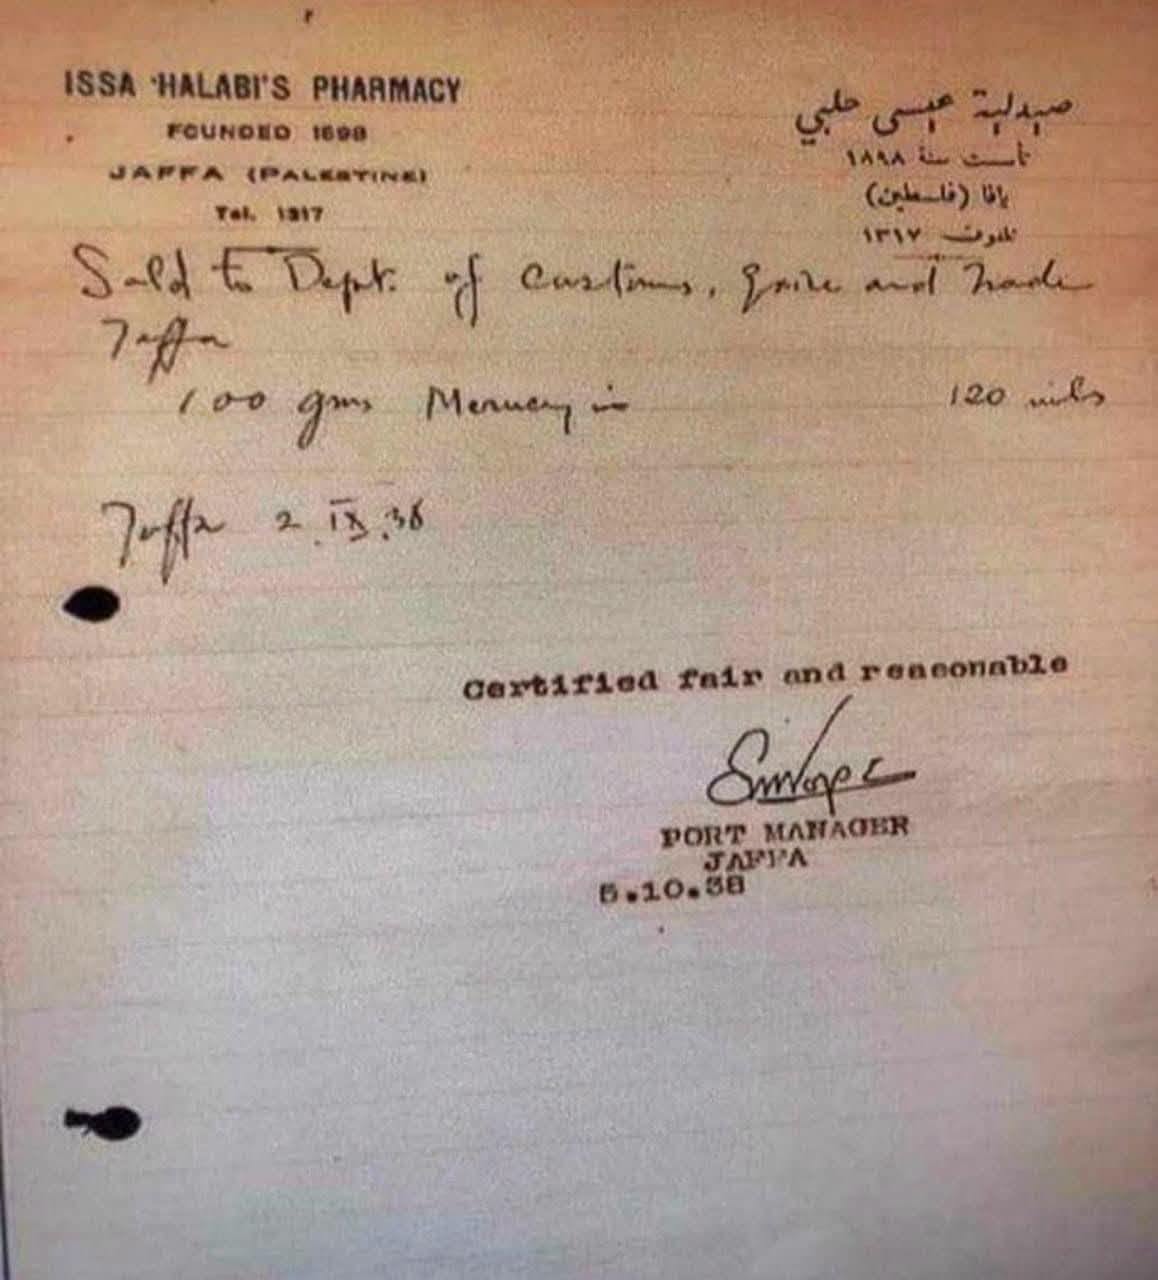 ISSA 'HALABI'S PHARMACY
FOUNDED 1898
JAFFA (PALESTINE)
Tel. 1317
صيدلية عيسى حلبي
تأسست سنة ١٨٩٨
يافا (فلسطين)
تلفون ١٣١٧
Sold to Dept. of Customs, Excise and Trade
Jaffa
100 gms Mercury
120 mils
Jaffa 2.IX.38
Certified fair and reasonable
PORT MANAGER
JAFFA
5.10.38